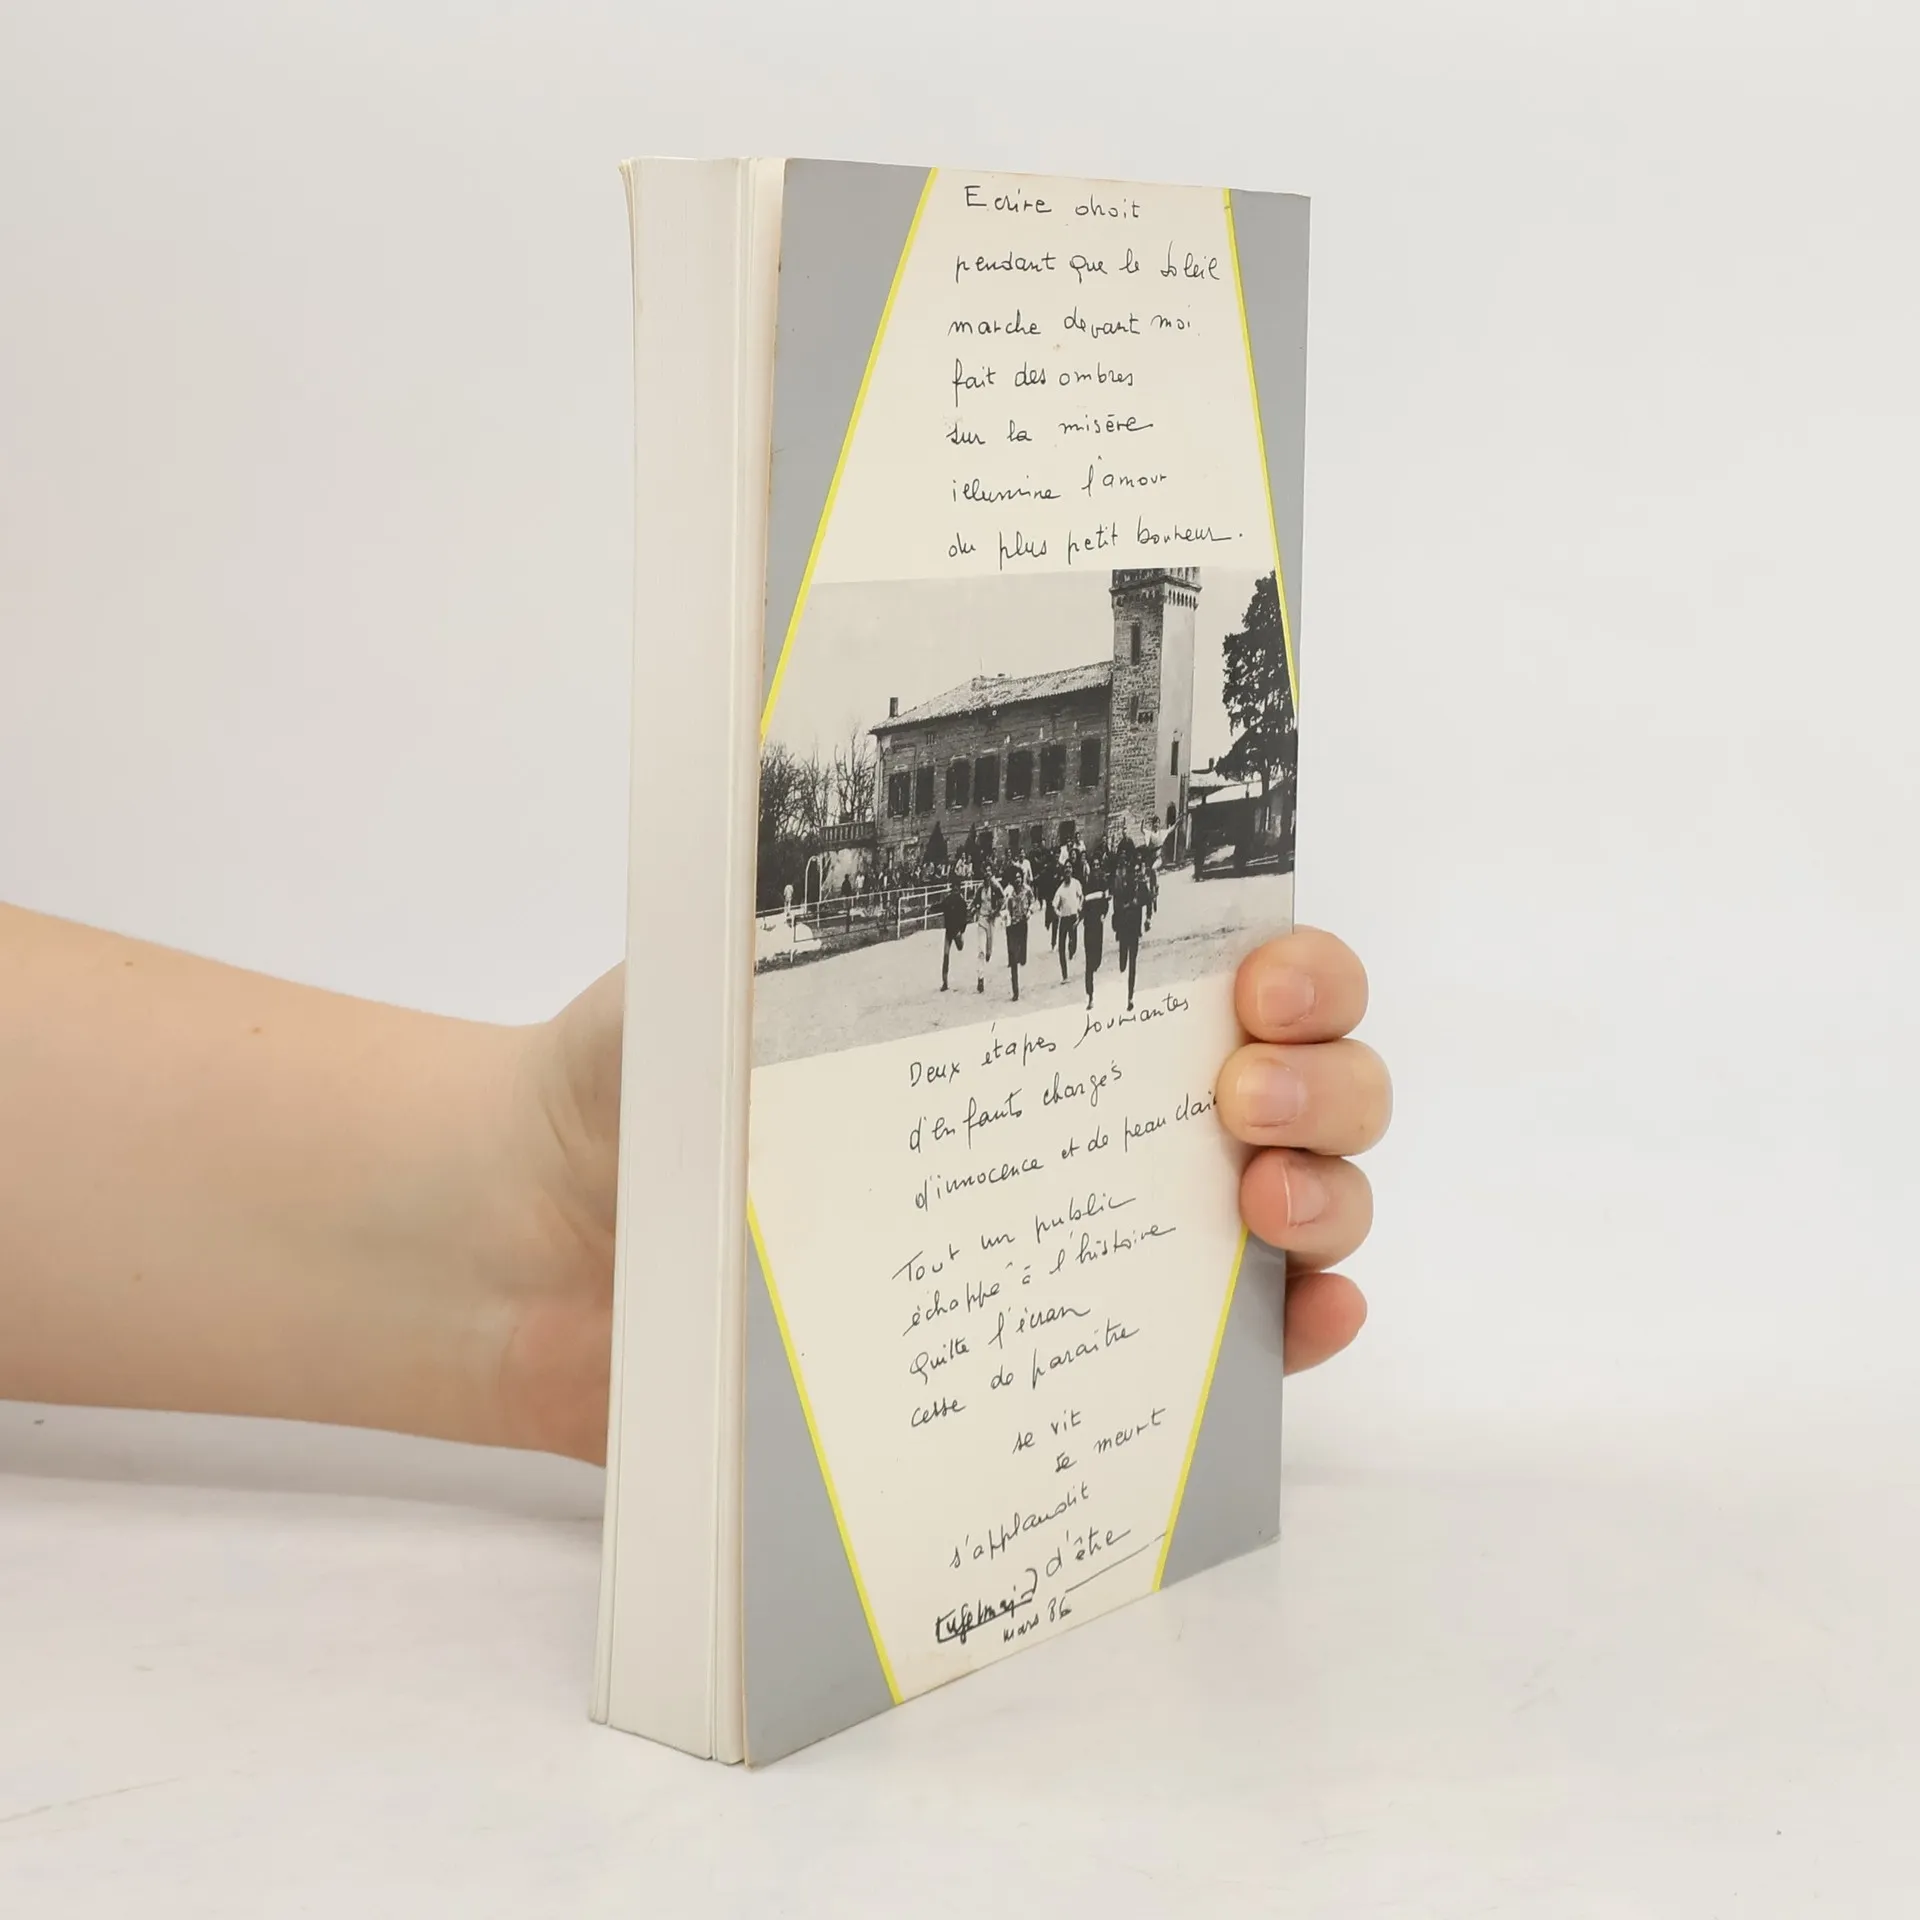 Ecrire droit
pendant que le soleil
marche devant moi
fait des ombres
sur la misère
illumine l'amour
du plus petit bonheur.
Deux étapes souriantes
d'enfants chargés
d'innocence et de peau clai
Tout un public
échappé à l'histoire
Quitte l'écran
cesse de paraître
se vit
se meurt
s'applaudit
d'être
mars 86